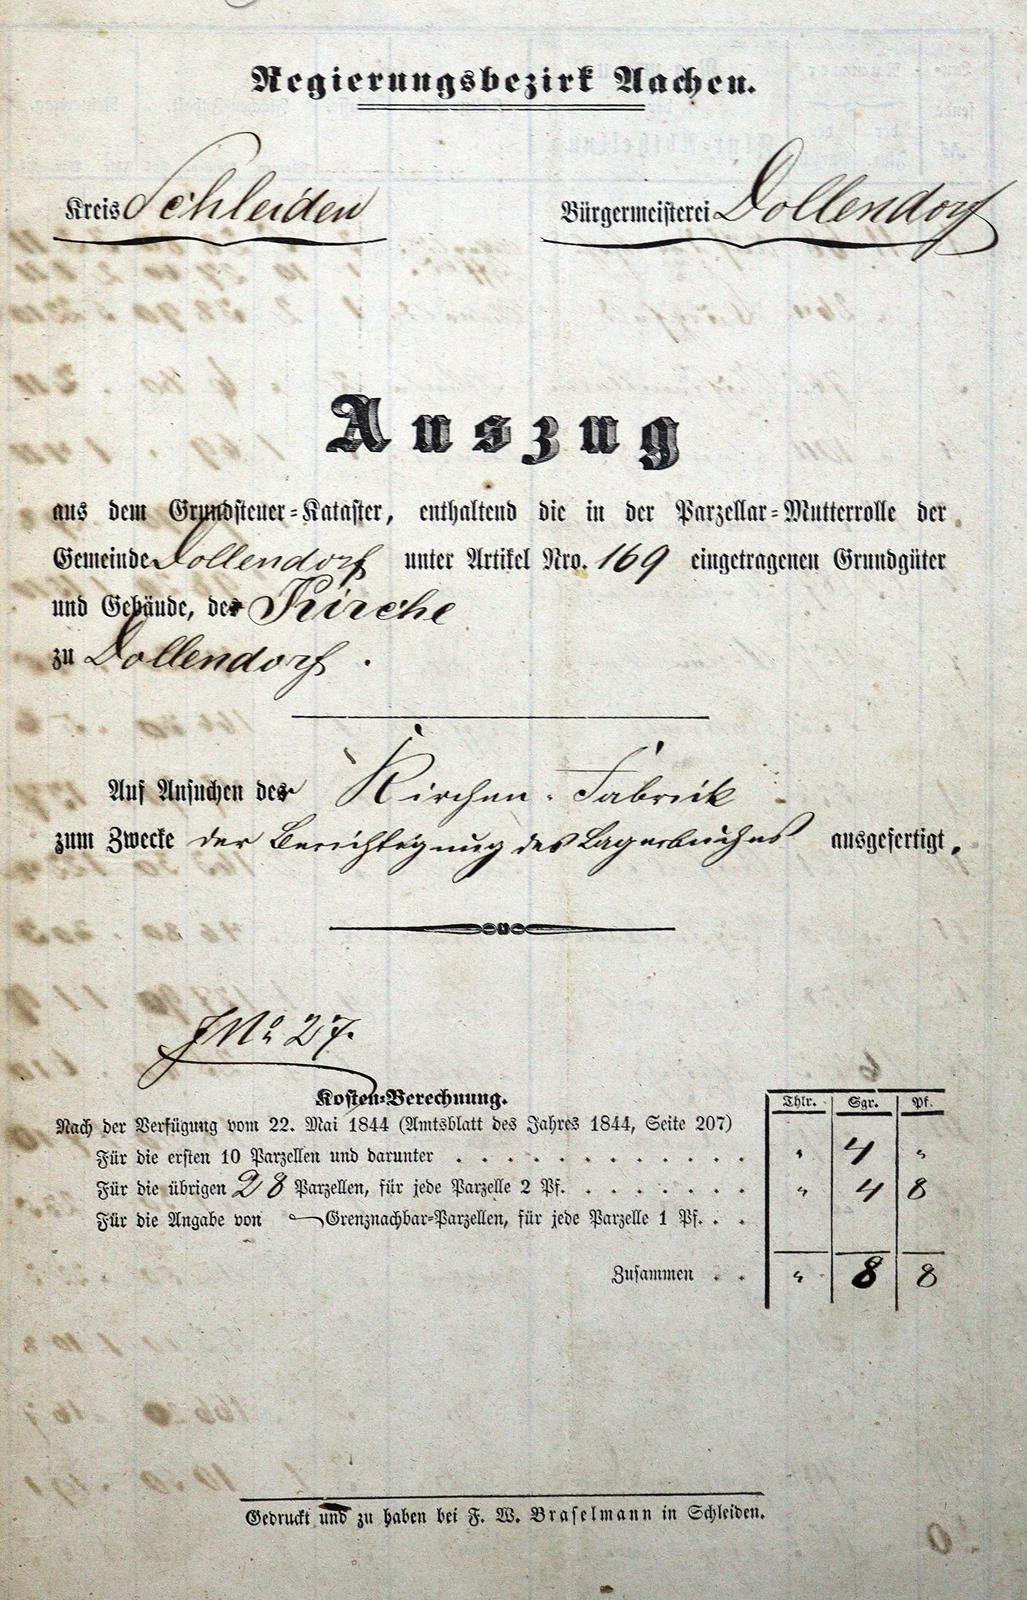 Regierungsbezirk Aachen.
Kreis Schleiden
Bürgermeisterei Dollendorf
Auszug
aus dem Grundsteuer-Kataster, enthaltend die in der Parzellar-Mutterrolle der
Gemeinde Dollendorf unter Artikel Nro. 169 eingetragenen Grundgüter
und Gebäude, der Kirche
zu Dollendorf.
Auf Ansuchen der Kirchen-Fabrik
zum Zwecke der Berichtigung des Lagerbuches ausgefertigt.
J No 27.
Kosten-Berechnung.
Thlr. Sgr. Pf.
Nach der Verfügung vom 22. Mai 1844 (Amtsblatt des Jahres 1844, Seite 207)
Für die ersten 10 Parzellen und darunter . . . . . . . . . . " 4 "
Für die übrigen 28 Parzellen, für jede Parzelle 2 Pf. . . . . . . " 4 8
Für die Angabe von — Grenznachbar-Parzellen, für jede Parzelle 1 Pf. . .
Zusammen . . " 8 8
Gedruckt und zu haben bei F. W. Braselmann in Schleiden.